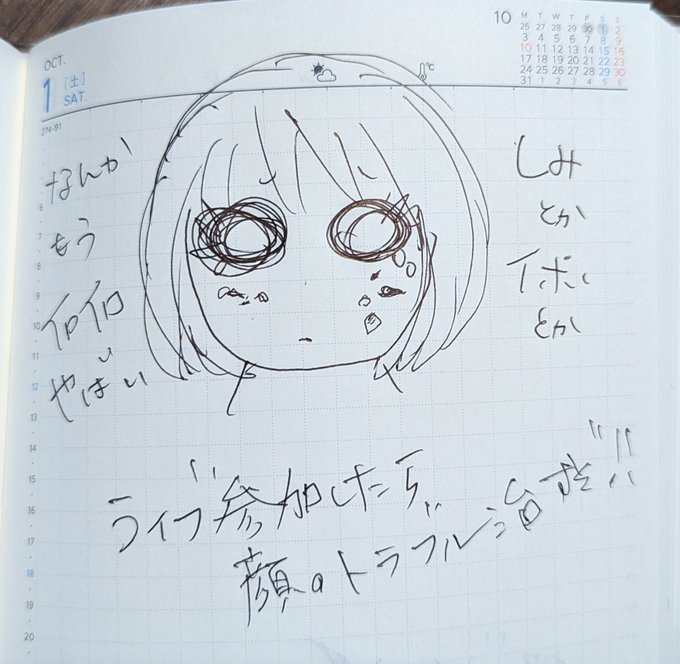 10
M T W T F S S
26 27 28 29 30 1 2
3 4 5 6 7 8 9
10 11 12 13 14 15 16
17 18 19 20 21 22 23
24 25 26 27 28 29 30
31 1 2 3 4 5 6
OCT.
1 [土]
SAT.
274-91
℃
なんか
もう
イロイロ
やばい
しみ
とか
イボ
とか
6
7
8
9
10
11
12
13
14
15
16
17
18
19
20
ライブ参加したら
顔のトラブル治せ!!